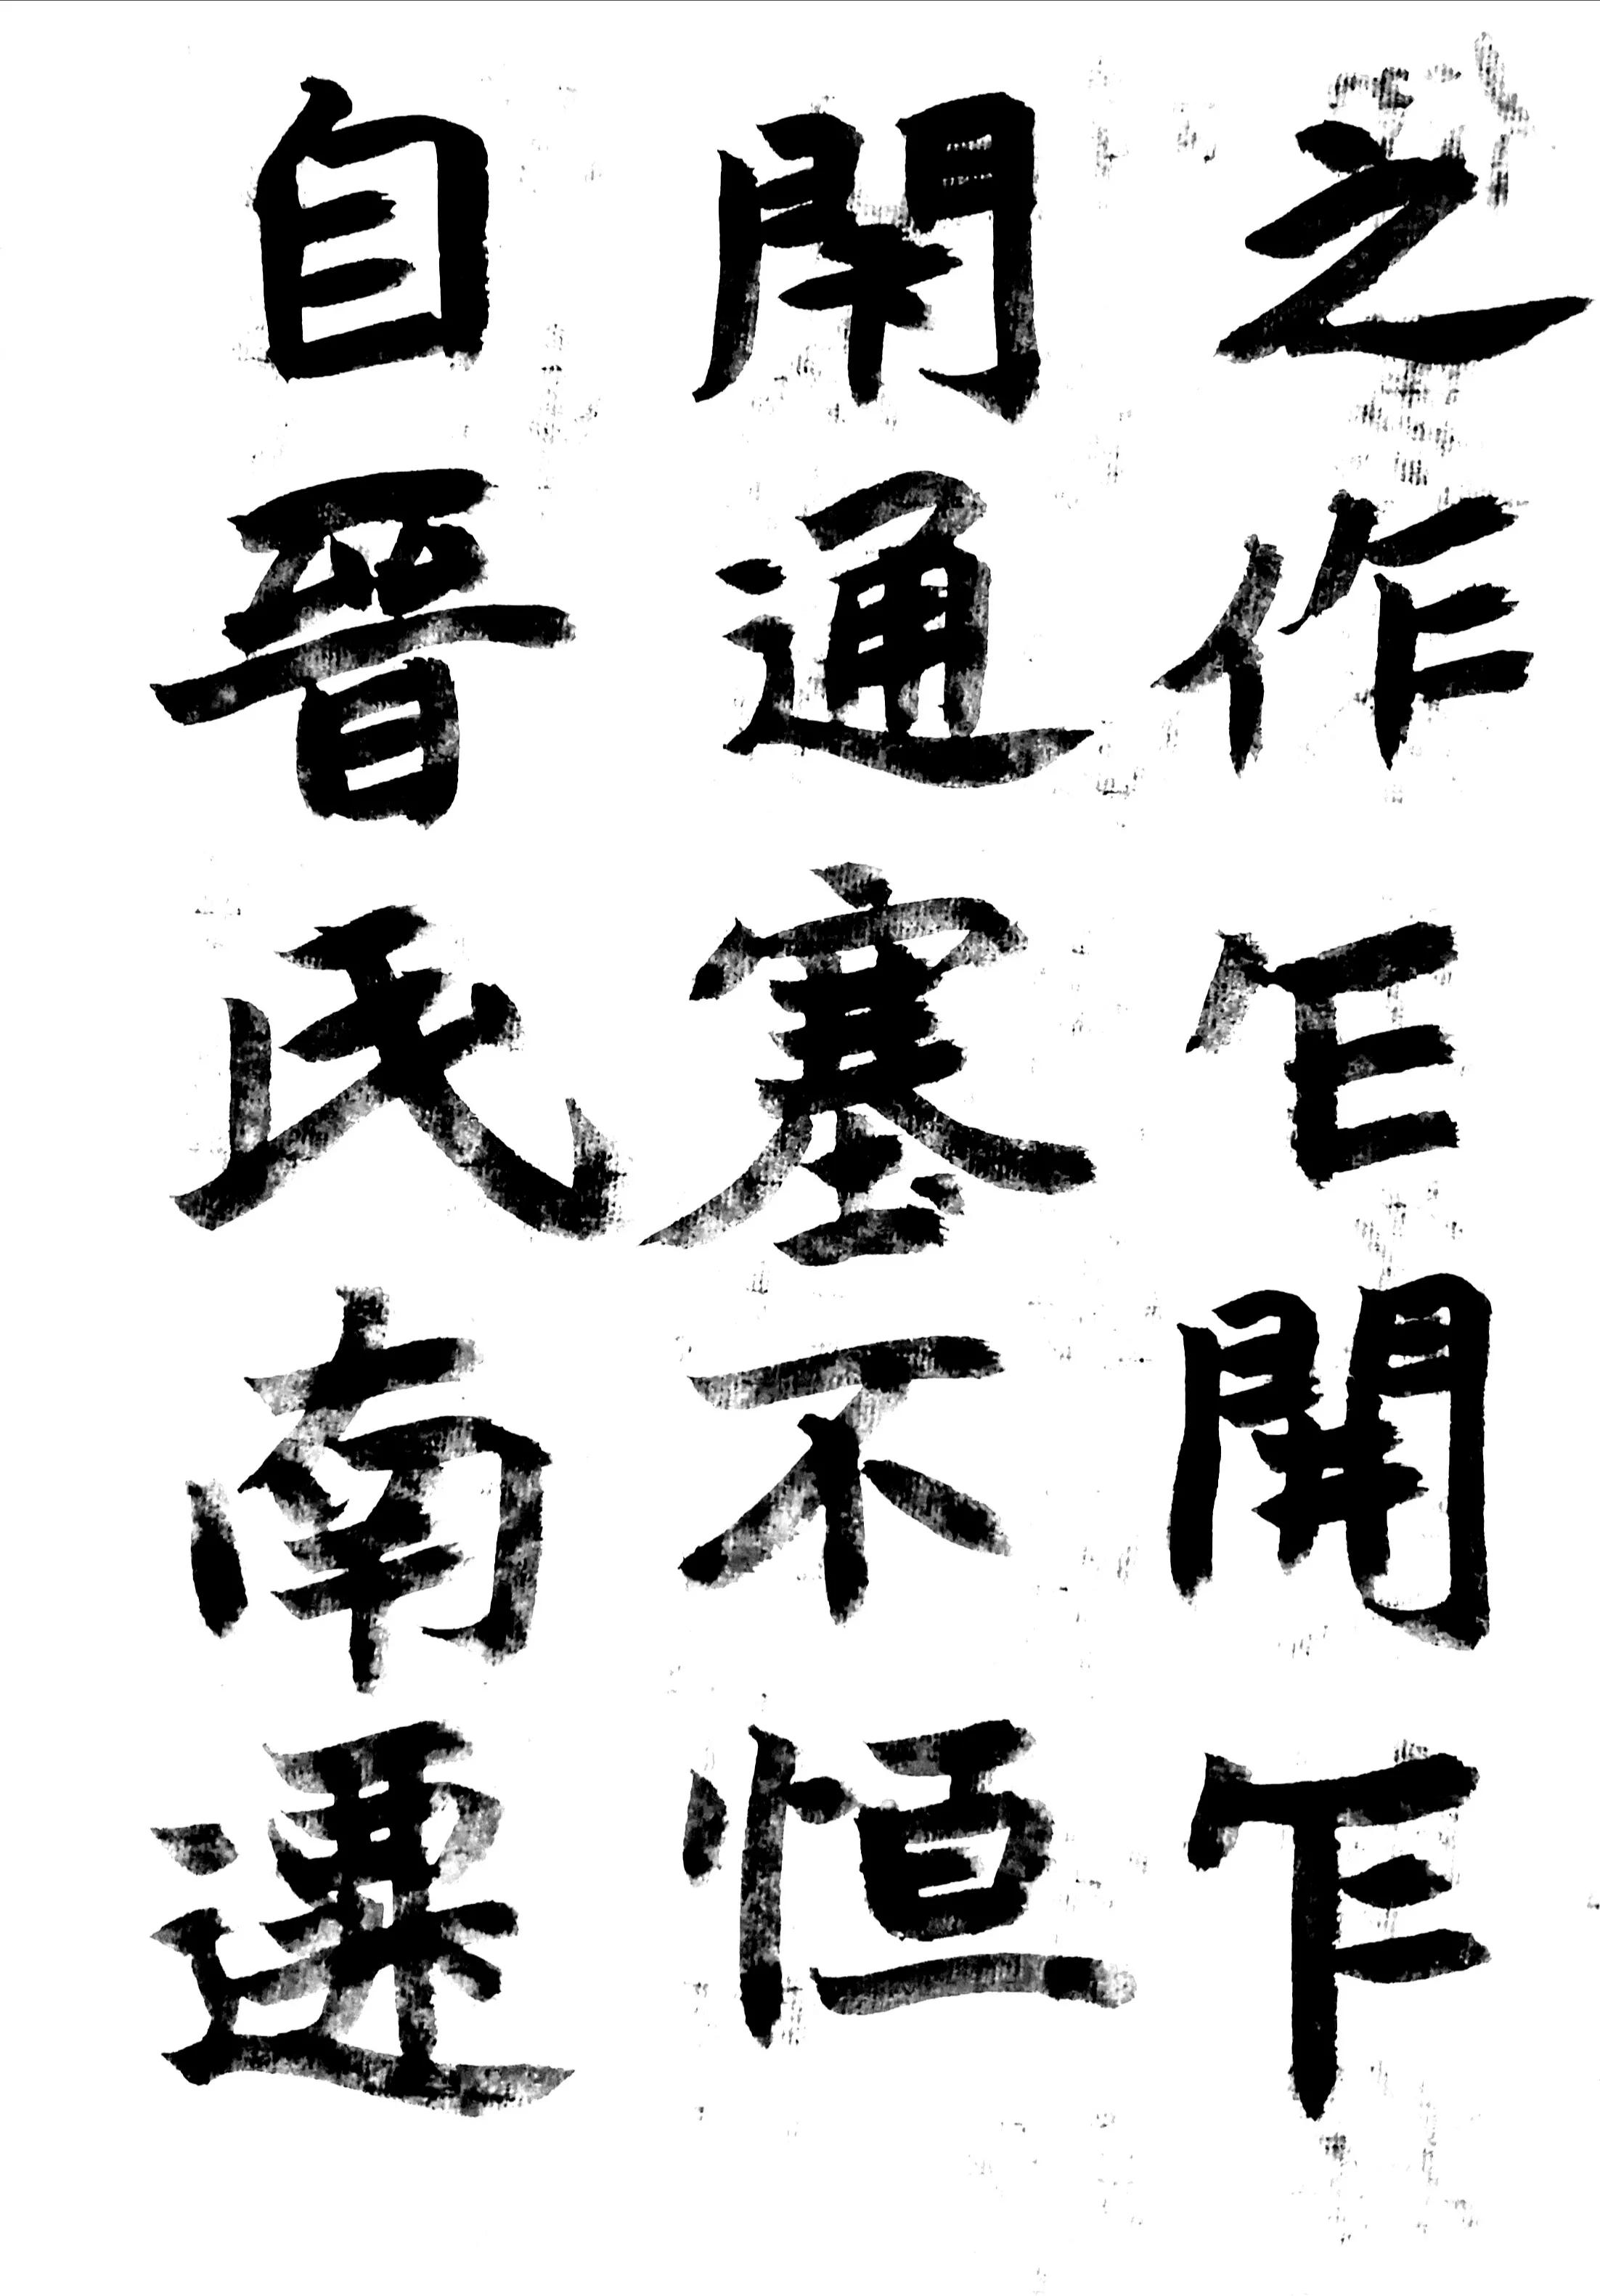 之作乍開乍
閇通塞不恒
自晉氏南遷